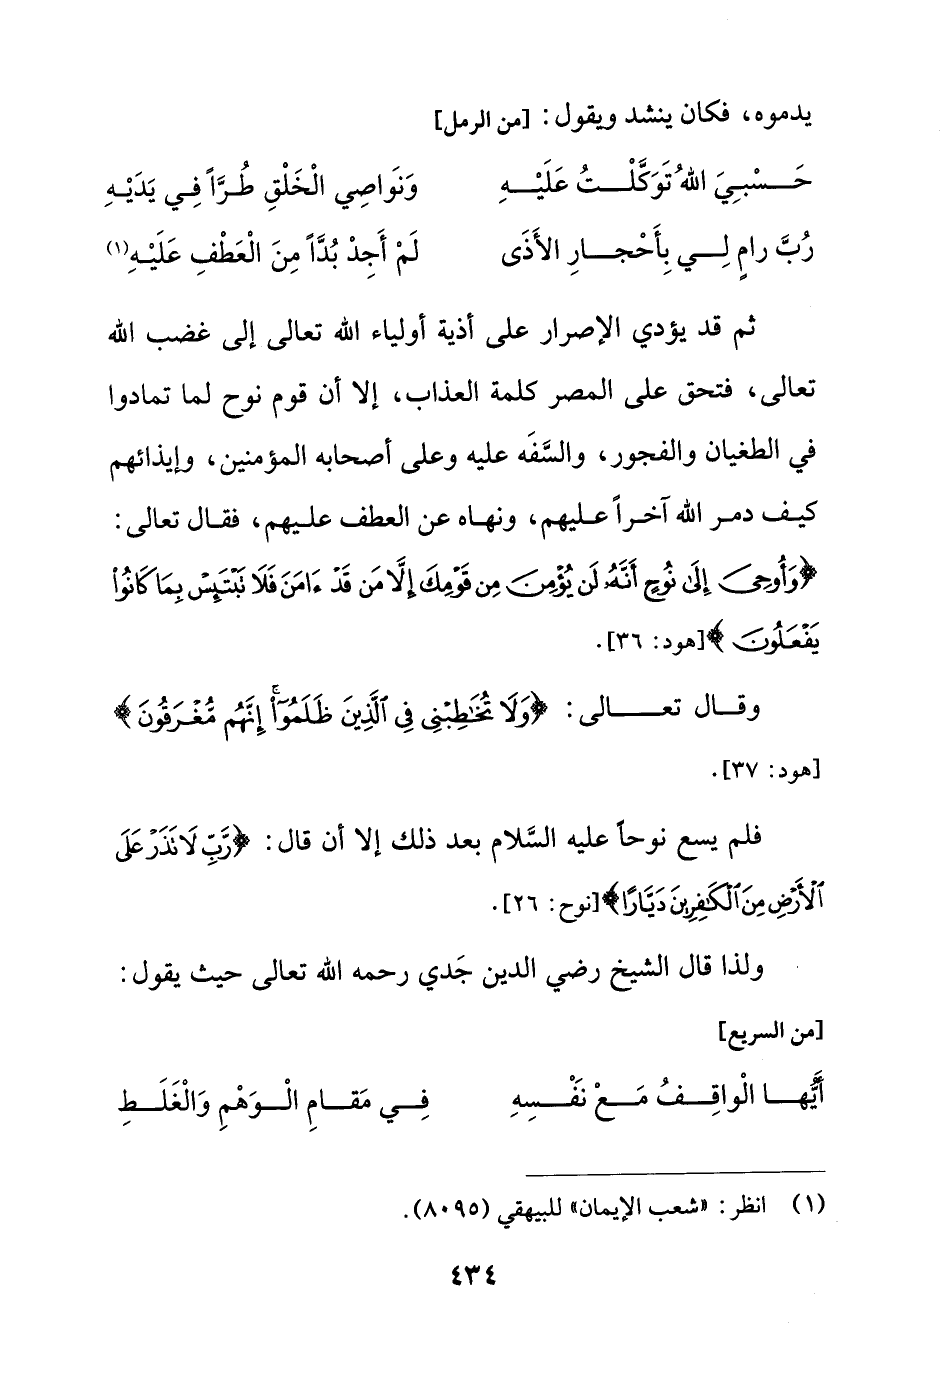 يدموه، فكان ينشد ويقول: [من الرمل]
حَـــسْبِيَ اللهُ تَوَكَّلْـــتُ عَلَيْـــهِ وَنَواصِي الْخَلْقِ طُـرَّاً فِـي يَدَيْـهِ
رُبَّ رامٍ لِـــي بِأَحْجـــارِ الأَذَى لَمْ أَجِدْ بُدَّاً مِنَ الْعَطْفِ عَلَيْـهِ(١)
ثم قد يؤدي الإصرار على أذية أولياء الله تعالى إلى غضب الله
تعالى، فتحق على المصر كلمة العذاب، إلا أن قوم نوح لما تمادوا
في الطغيان والفجور، والسَّفَه عليه وعلى أصحابه المؤمنين، وإيذائهم
كيـف دمـر الله آخـراً عليهم، ونهـاه عن العطف عليـهم، فقـال تعالى:
﴿وَأُوحِىَ إِلَىٰ نُوحٍ أَنَّهُۥ لَن يُؤْمِنَ مِن قَوْمِكَ إِلَّا مَن قَدْ ءَامَنَ فَلَا نَبْتَئِسْ بِمَا كَانُوا۟
يَفْعَلُونَ﴾[هود: ٣٦].
وقـــال تعـــــالى: ﴿وَلَا تُخَٰطِبْنِى فِى ٱلَّذِينَ ظَلَمُوٓا۟ۚ إِنَّهُم مُّغْرَقُونَ﴾
[هود: ٣٧].
فلم يسع نوحاً عليه السَّلام بعد ذلك إلا أن قال: ﴿رَّبِّ لَا نَذَرْ عَلَى
ٱلْأَرْضِ مِنَ ٱلْكَٰفِرِينَ دَيَّارًا﴾[نوح: ٢٦].
ولذا قال الشيخ رضي الدين جَدي رحمه الله تعالى حيث يقول:
[من السريع]
أَيُّهـــا الْواقِـــفُ مَـــعْ نَفْـــسِهِ فِـــي مَقـــامِ الْـــوَهْمِ وَالْغَلَـــطِ
(١) انظر: «شعب الإيمان» للبيهقي (٨٠٩٥).
٤٣٤